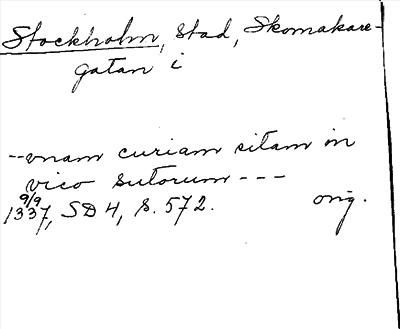 Stockholm, stad, Skomakare-
gatan i
--vnam curiam sitam in
vico sutorum ---
9/9
1337, SD 4, s. 572. orig.